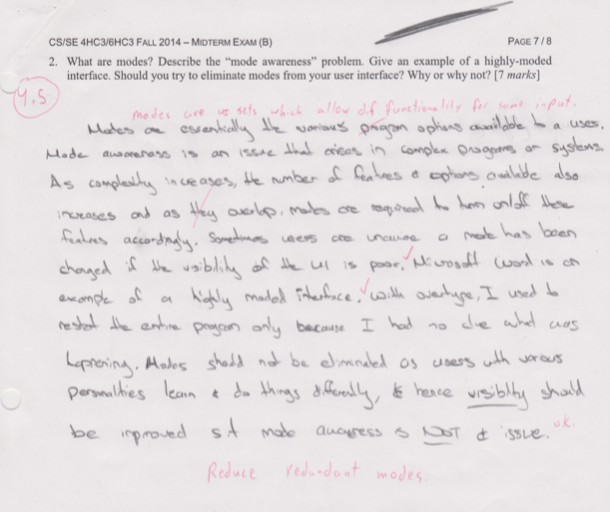 CS/SE 4HC3/6HC3 FALL 2014 – MIDTERM EXAM (B) PAGE 7 / 8
2. What are modes? Describe the "mode awareness" problem. Give an example of a highly-moded
interface. Should you try to eliminate modes from your user interface? Why or why not? [7 marks]
4.5
modes are sets which allow dif functionality for same input.
Modes are essentially the various program options available to a user.
Mode awareness is an issue that arises in complex programs or systems.
As complexity increases, the number of features & options available also
increases and as they overlap, modes are required to turn on/off these
features accordingly. Sometimes users are unaware a mode has been
changed if the visibility of the UI is poor. Microsoft Word is an
example of a highly moded interface. With overtype, I used to
restart the entire program only because I had no clue what was
happening. Modes should not be eliminated as users with various
personalities learn & do things differently, & hence visiblity should
be improved s.t mode awareness is NOT issue. ok.
Reduce redundant modes.